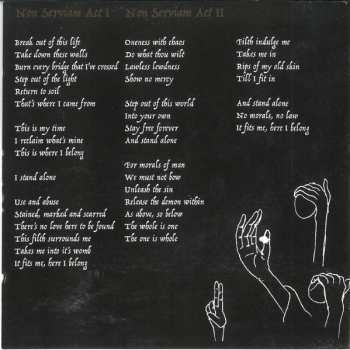 Non Serviam Act I
Break out of this life
Take down these walls
Burn every bridge that I've crossed
Step out of the light
Return to soil
That's where I came from
This is my time
I reclaim what's mine
This is where I belong
I stand alone
Use and abuse
Stained, marked and scarred
There's no love here to be found
This filth surrounds me
Takes me into it's womb
It fits me, here I belong
Non Serviam Act II
Oneness with chaos
Do what thou wilt
Lawless lewdness
Show no mercy
Step out of this world
Into your own
Stay free forever
And stand alone
For morals of man
We must not bow
Unleash the sin
Release the demon within
As above, so below
The whole is one
The one is whole
Filth indulge me
Takes me in
Rips of my old skin
Till I fit in
And stand alone
No morals, no law
It fits me, here I belong